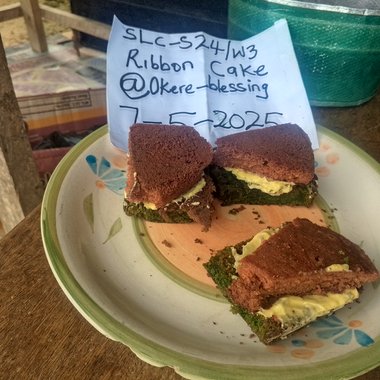 SLC-S24/W3
Ribbon Cake
@Okere-blessing
7-5-2025